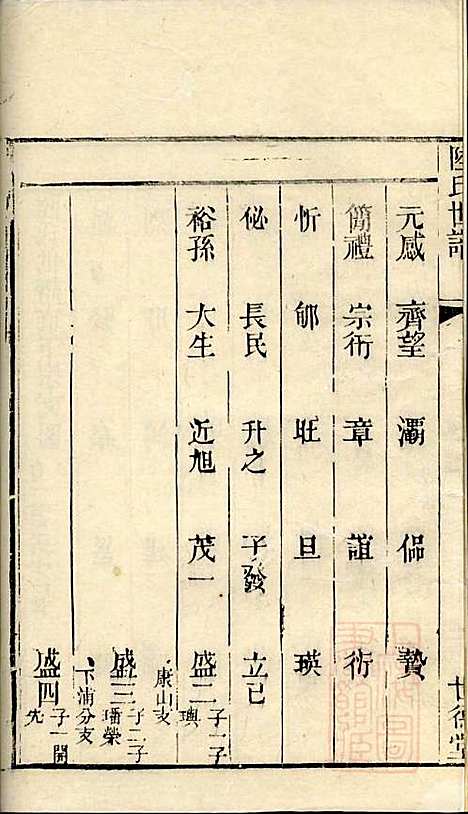 陸氏世譜
世德堂
元感 齊望 灞 侶 贄
簡禮 宗衍 章 誼 衍
忻 郇 旺 旦 瑛
佖 長民 升之 子發 立己
裕孫 大生 近旭 茂一 盛二 子一子璵
康山支
盛三 子二子璠榮
下浦分支
盛四 子一開先